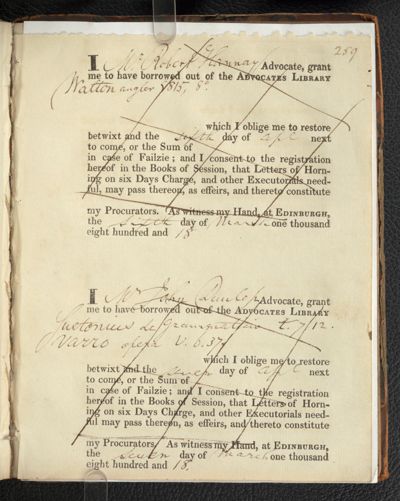 259
I Mr Robert Hannay Advocate, grant
me to have borrowed out of the ADVOCATES LIBRARY
Walton angler 1815, 8o.
which I oblige me to restore
betwixt and the sixth day of Apl next
to come, or the Sum of
in case of Failzie; and I consent to the registration
hereof in the Books of Session, that Letters of Horn-
ing on six Days Charge, and other Executorials need-
ful, may pass thereon, as effeirs, and thereto constitute
my Procurators. As witness my Hand, at EDINBURGH,
the sixth day of March one thousand
eight hundred and 18
I Mr John Dunlop Advocate, grant
me to have borrowed out of the ADVOCATES LIBRARY
Suetonius de t. 7/12.
Varro opera v. 6.37
which I oblige me to restore
betwixt and the seven day of Apl next
to come, or the Sum of
in case of Failzie; and I consent to the registration
hereof in the Books of Session, that Letters of Horn-
ing on six Days Charge, and other Executorials need-
ful may pass thereon, as effeirs, and thereto constitute
my Procurators. As witness my Hand, at EDINBURGH,
the seven day of March one thousand
eight hundred and 18